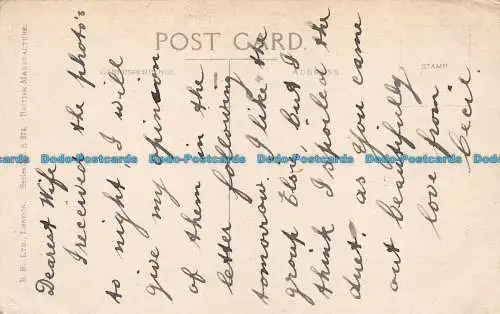 POST CARD.
CORRESPONDENCE
ADDRESS
STAMP
B. B. LTD., LONDON. Series E 276, BRITISH MANUFACTURE.
Dearest Wife
I received the photo's
to night I will
give my opinion
of them in the
letter following
tomorrow I like "the
group tho'", but I
think I spoiled the
duet, as you came
out beautifully
love from
Cecil.
Dodo-Postcards Dodo-Postcards Dodo-Postcards Dodo-Postcards
Dodo-Postcards Dodo-Postcards Dodo-Postcards Dodo-Postcards